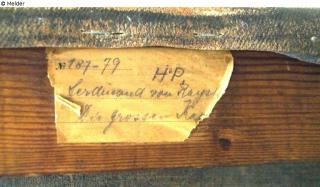 © Melder
№ 187-79 H.P.
Ferdinand von
Die grossen